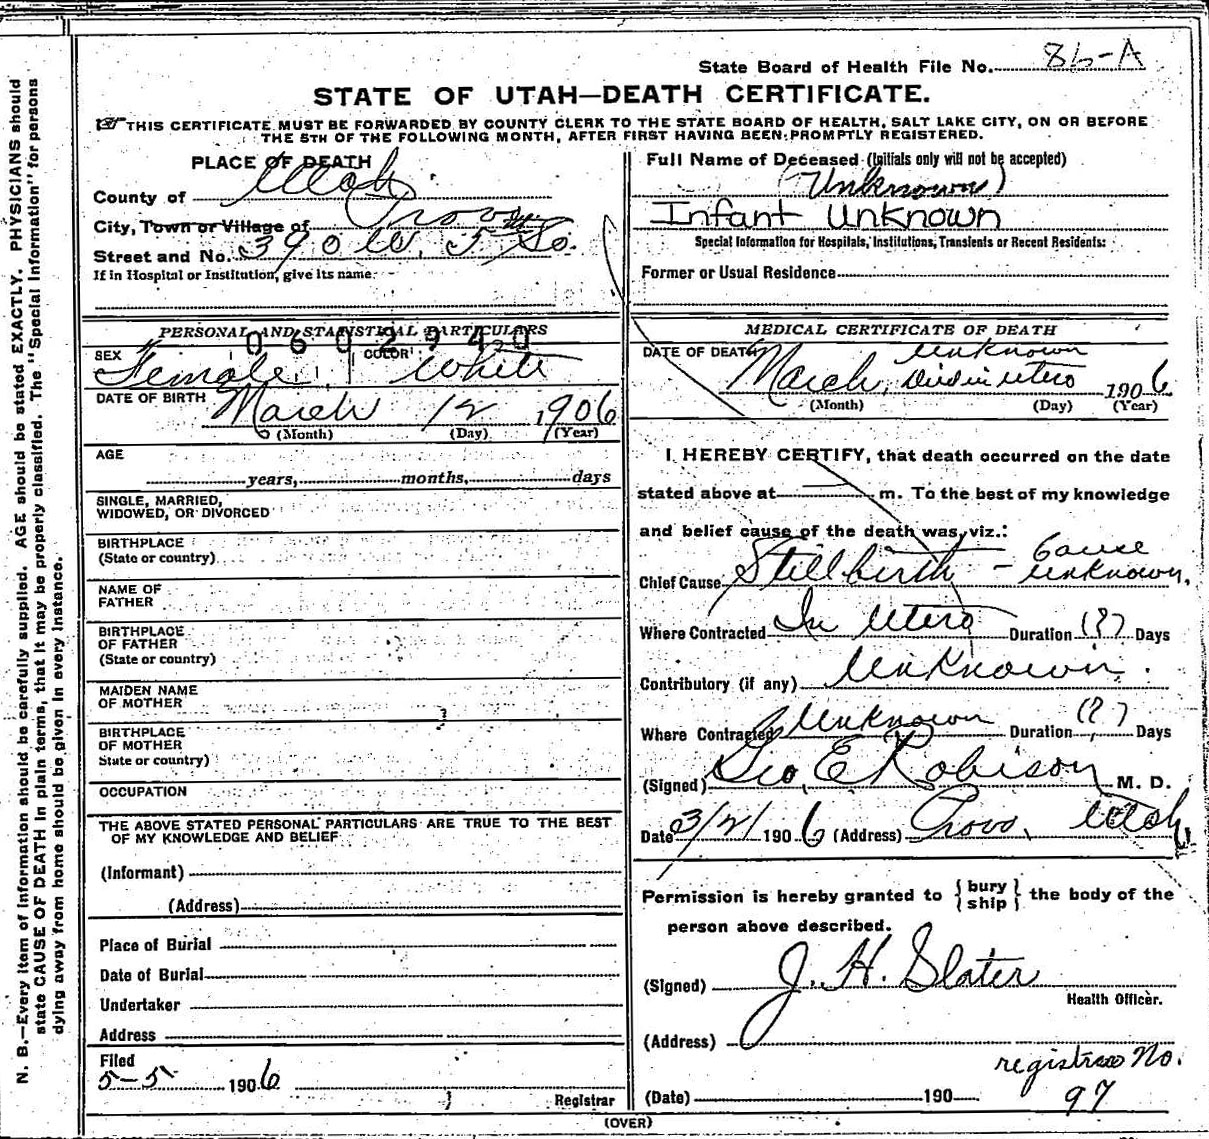 State Board of Health File No. 86-A
STATE OF UTAH—DEATH CERTIFICATE.
THIS CERTIFICATE MUST BE FORWARDED BY COUNTY CLERK TO THE STATE BOARD OF HEALTH, SALT LAKE CITY, ON OR BEFORE
THE 5TH OF THE FOLLOWING MONTH, AFTER FIRST HAVING BEEN PROMPTLY REGISTERED.
PLACE OF DEATH
County of Utah
City, Town or Village of Provo
Street and No. 390 W. 5th So.
If in Hospital or Institution, give its name
Full Name of Deceased (Initials only will not be accepted)
(Unknown)
Infant Unknown
Special Information for Hospitals, Institutions, Transients or Recent Residents:
Former or Usual Residence
PERSONAL AND STATISTICAL PARTICULARS
0602940
SEX Female COLOR White
DATE OF BIRTH March 12 1906
(Month) (Day) (Year)
AGE
years, months, days
SINGLE, MARRIED,
WIDOWED, OR DIVORCED
BIRTHPLACE
(State or country)
NAME OF
FATHER
BIRTHPLACE
OF FATHER
(State or country)
MAIDEN NAME
OF MOTHER
BIRTHPLACE
OF MOTHER
State or country)
OCCUPATION
THE ABOVE STATED PERSONAL PARTICULARS ARE TRUE TO THE BEST
OF MY KNOWLEDGE AND BELIEF
(Informant)
(Address)
Place of Burial
Date of Burial
Undertaker
Address
Filed
5-5 1906
Registrar
MEDICAL CERTIFICATE OF DEATH
DATE OF DEATH unknown
March, Died in utero 1906
(Month) (Day) (Year)
I HEREBY CERTIFY, that death occurred on the date
stated above at m. To the best of my knowledge
and belief cause of the death was, viz.:
Chief Cause Stillbirth - Cause unknown.
Where Contracted In Utero Duration (?) Days
Contributory (if any) Unknown.
Where Contracted Unknown Duration (?) Days
(Signed) Geo. E Robison M. D.
Date 3/21 1906 (Address) Provo, Utah
Permission is hereby granted to {bury ship} the body of the
person above described.
(Signed) J. H. Slater
Health Officer.
(Address)
registras No.
97
(Date) 190
(OVER)
N. B.—Every item of information should be carefully supplied. AGE should be stated EXACTLY. PHYSICIANS should
state CAUSE OF DEATH in plain terms, that it may be properly classified. The "Special Information" for persons
dying away from home should be given in every instance.